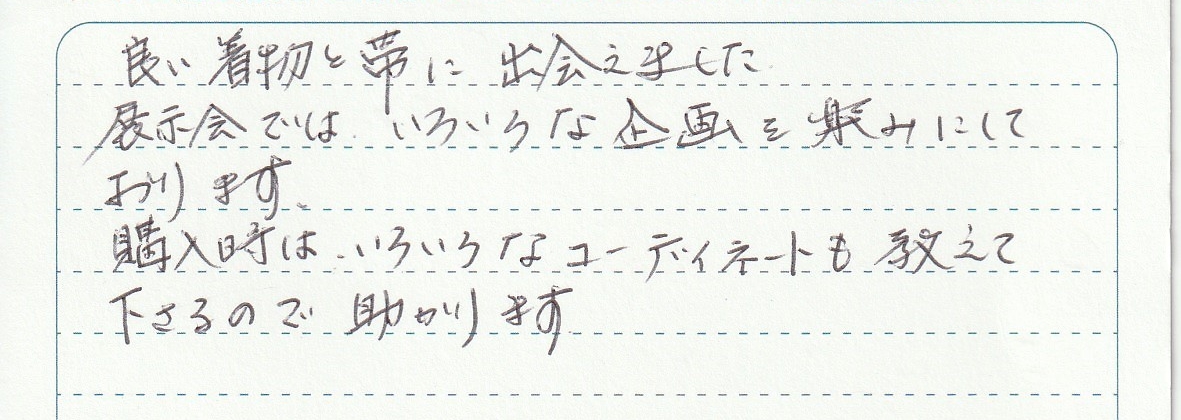 良い着物と帯に出会えました
展示会では、いろいろな企画を楽みにして
おります、
購入時は、いろいろなコーディネートも教えて
下さるので助かります